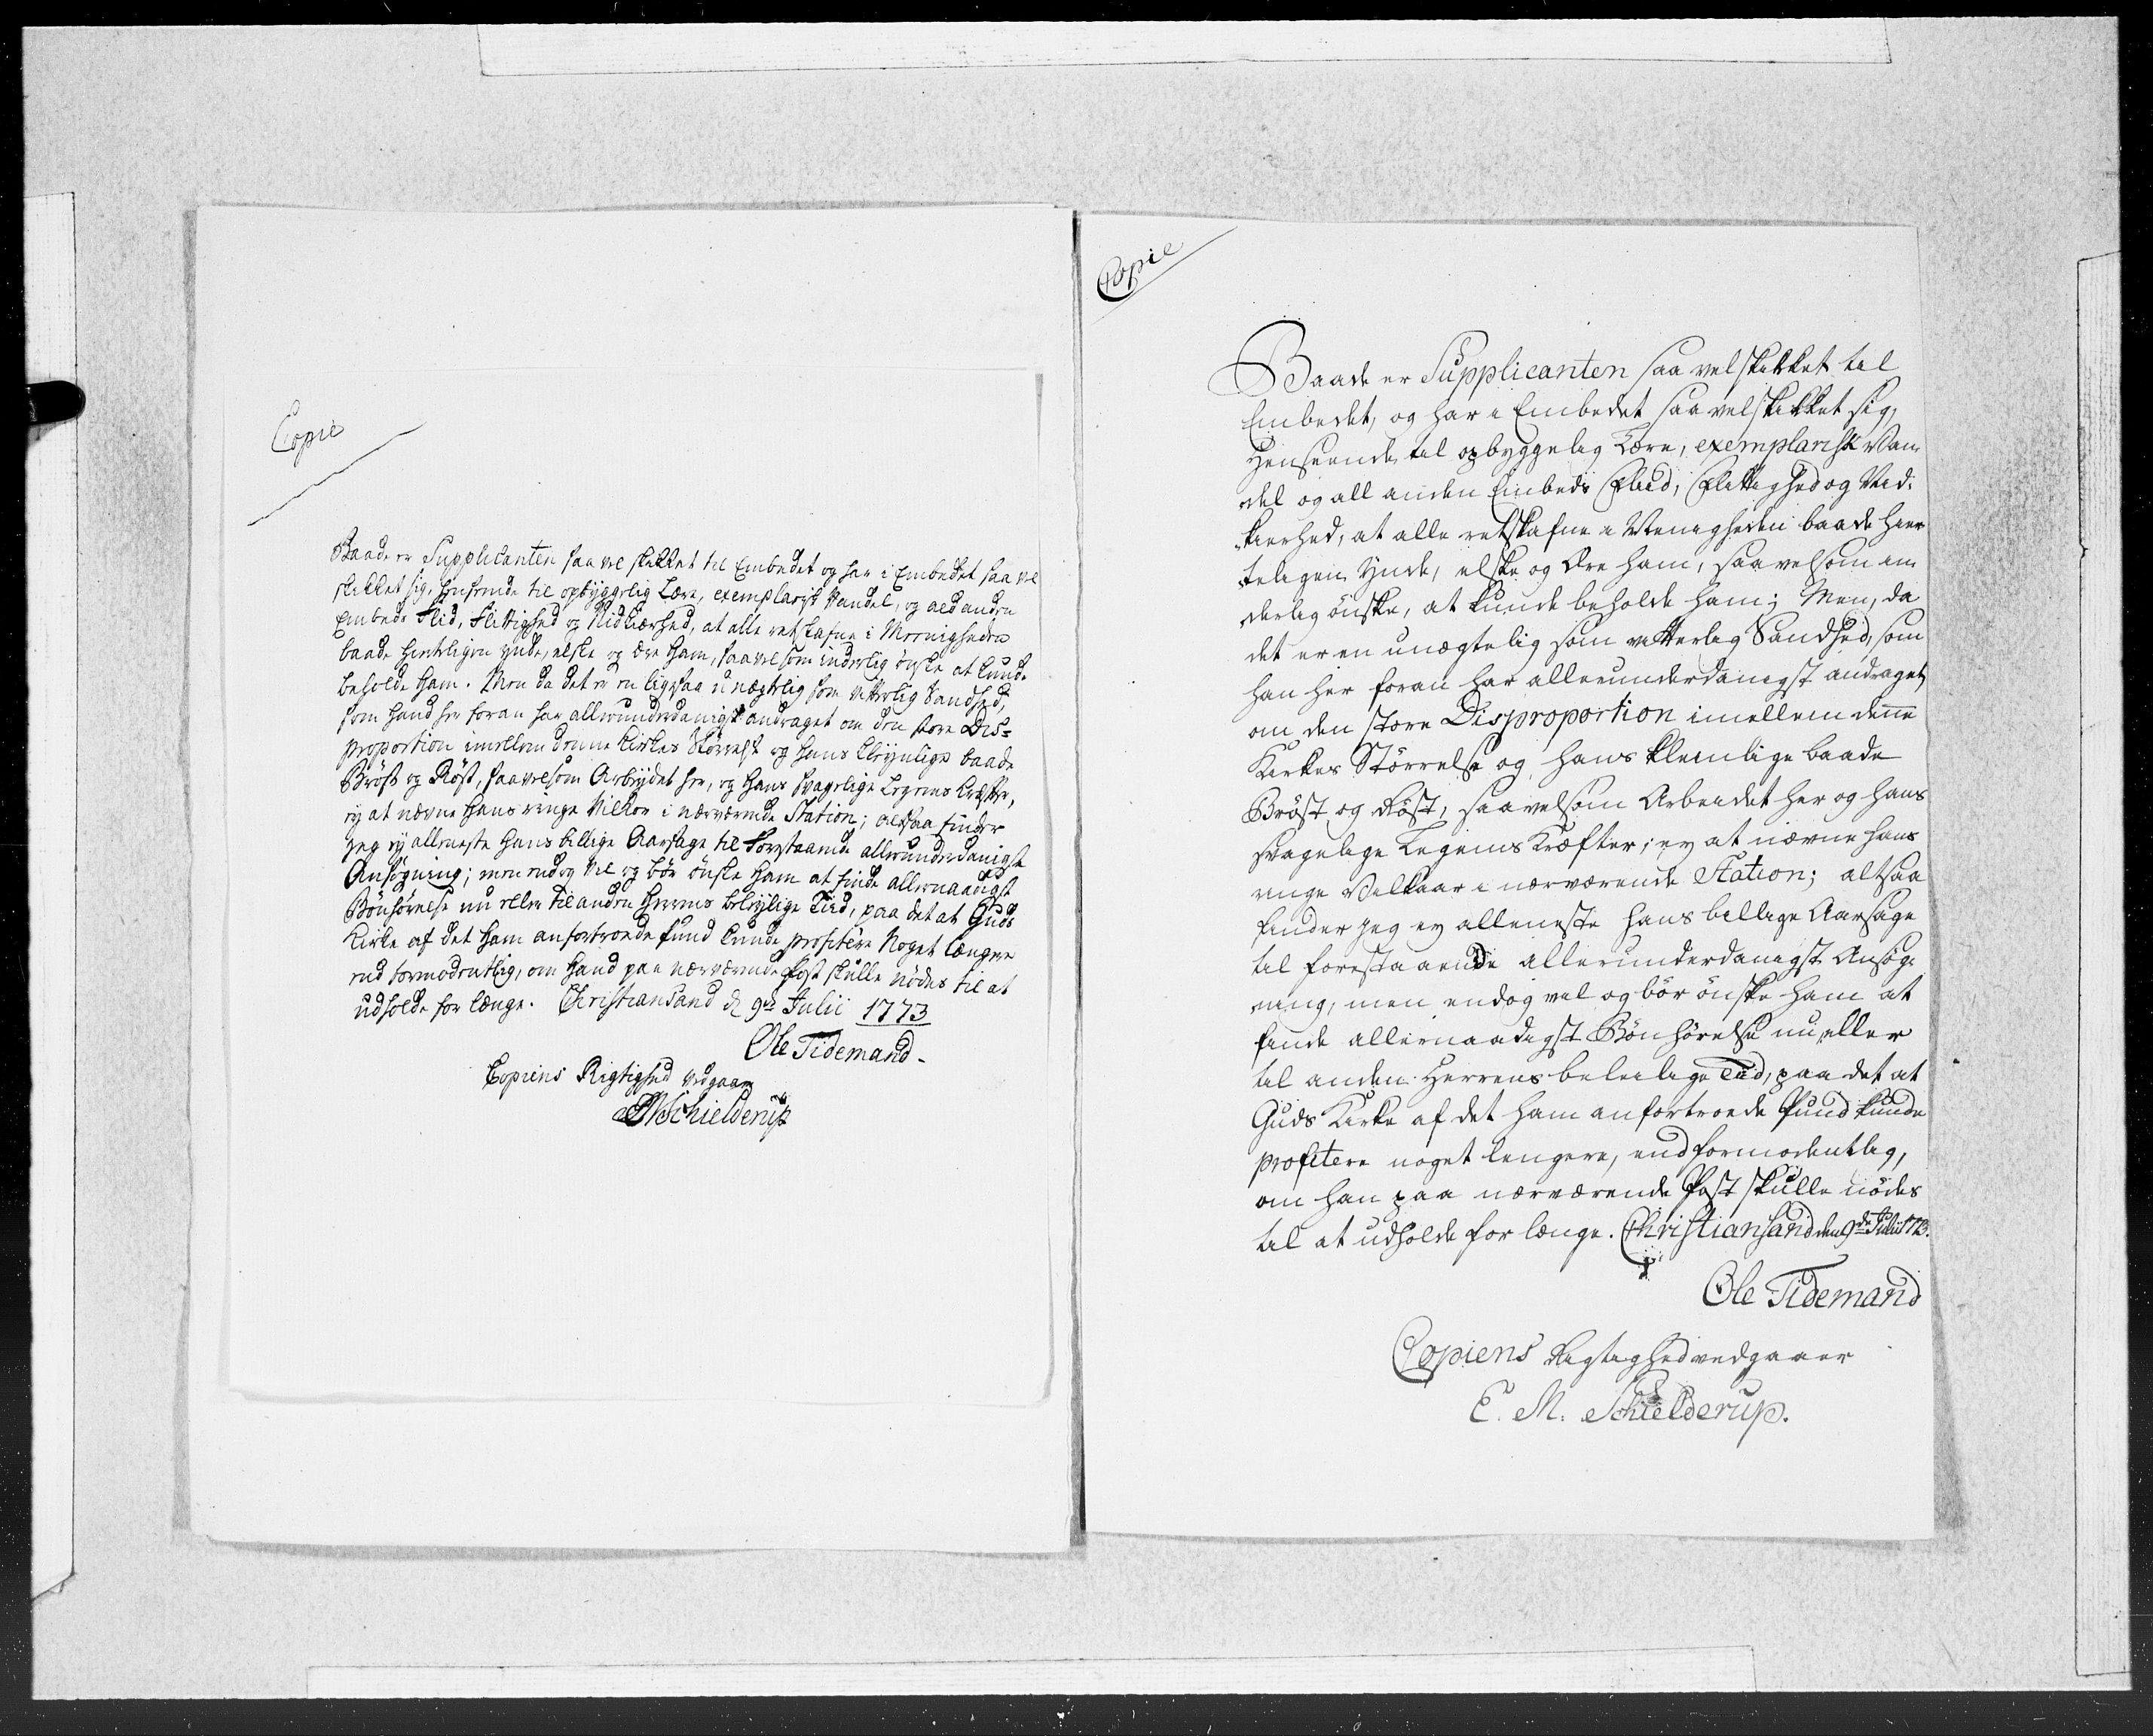 Copie
Baade er Supplicanten saa vel skikket til Embedet og har i Embedet saa vel
skikket sig, henseende til opbyggelig Lære, exemplarisk Vandel, og all anden
Embeds Flid, Flittighed og Nidkiærhed, at alle retskafne i Meenigheden
baade hierteligen ynde, elske og ære ham, saavelsom inderlig ønske at kunde
beholde ham. Men da det er en ligesaa unægtelig som vitterlig Sandhed,
som hand her foran har allerunderdanigst andraget om den store Dis-
proportion imellem denne Kirkes Størrelse og hans kleynlige baade
Bröst og Röst, saavelsom Arbeydet her, og hans svagelige Legems Kræfter,
ey at nævne hans ringe Vilkor i nærværende Station; altsaa finder
jeg ey alleneste hans billige Aarsage til forestaaende allerunderdanigste
Ansøgning; men endog vil og bör önske ham at finde allernaadigst
Bönhörelse nu eller til anden Herrens beleylige Tiid, paa det at Guds
Kirke af det ham anfortroede Pund kunde profitere noget længere
end formodentlig, om hand paa nærværende Post skulle nödes til at
udholde for længe. Christiansand d 9de Julii 1773
Ole Tidemand.
Copiens Rigtighed vedgaar
EMSchielderup
Copie
Baade er Supplicanten saa vel skikket til
Embedet, og har i Embedet saa vel skikket sig,
Henseende til opbyggelig Lære, exemplarisk Van
del og all anden Embeds Fliid, Flittighed og Nid-
kierhed, at alle retskafne i Menigheden baade hier
teligen ynde, elske og ære ham, saavelsom in
derlig ønske, at kunde beholde ham; Men, da
det er en unægtelig som vitterlig Sandhed, som
han her foran har allerunderdanigst andraget
om den store Disproportion imellem denne
Kirkes Størrelse og hans kleinlige baade
Bröst og Röst, saavelsom Arbeidet her og hans
svagelige Legems Kræfter; ey at nævne hans
ringe Vilkaar i nærværende Station; altsaa
finder jeg ey alleneste hans billige Aarsage
til forestaaende allerunderdanigst Ansøg-
ning, men endog vil og bör önske ham at
finde allernaadigst Bönhörelse nu eller
til anden Herrens beleilige Tiid, paa det at
Guds Kirke af det ham anfortroede Pund kunde
profitere noget lengere, end formodentlig,
om han paa nærværende Post skulle nödes
til at udholde for længe. Christiansand den 9de Julii 1773.
Ole Tidemand
Copiens Rigtighed vedgaaer
E. M. Schielderup.